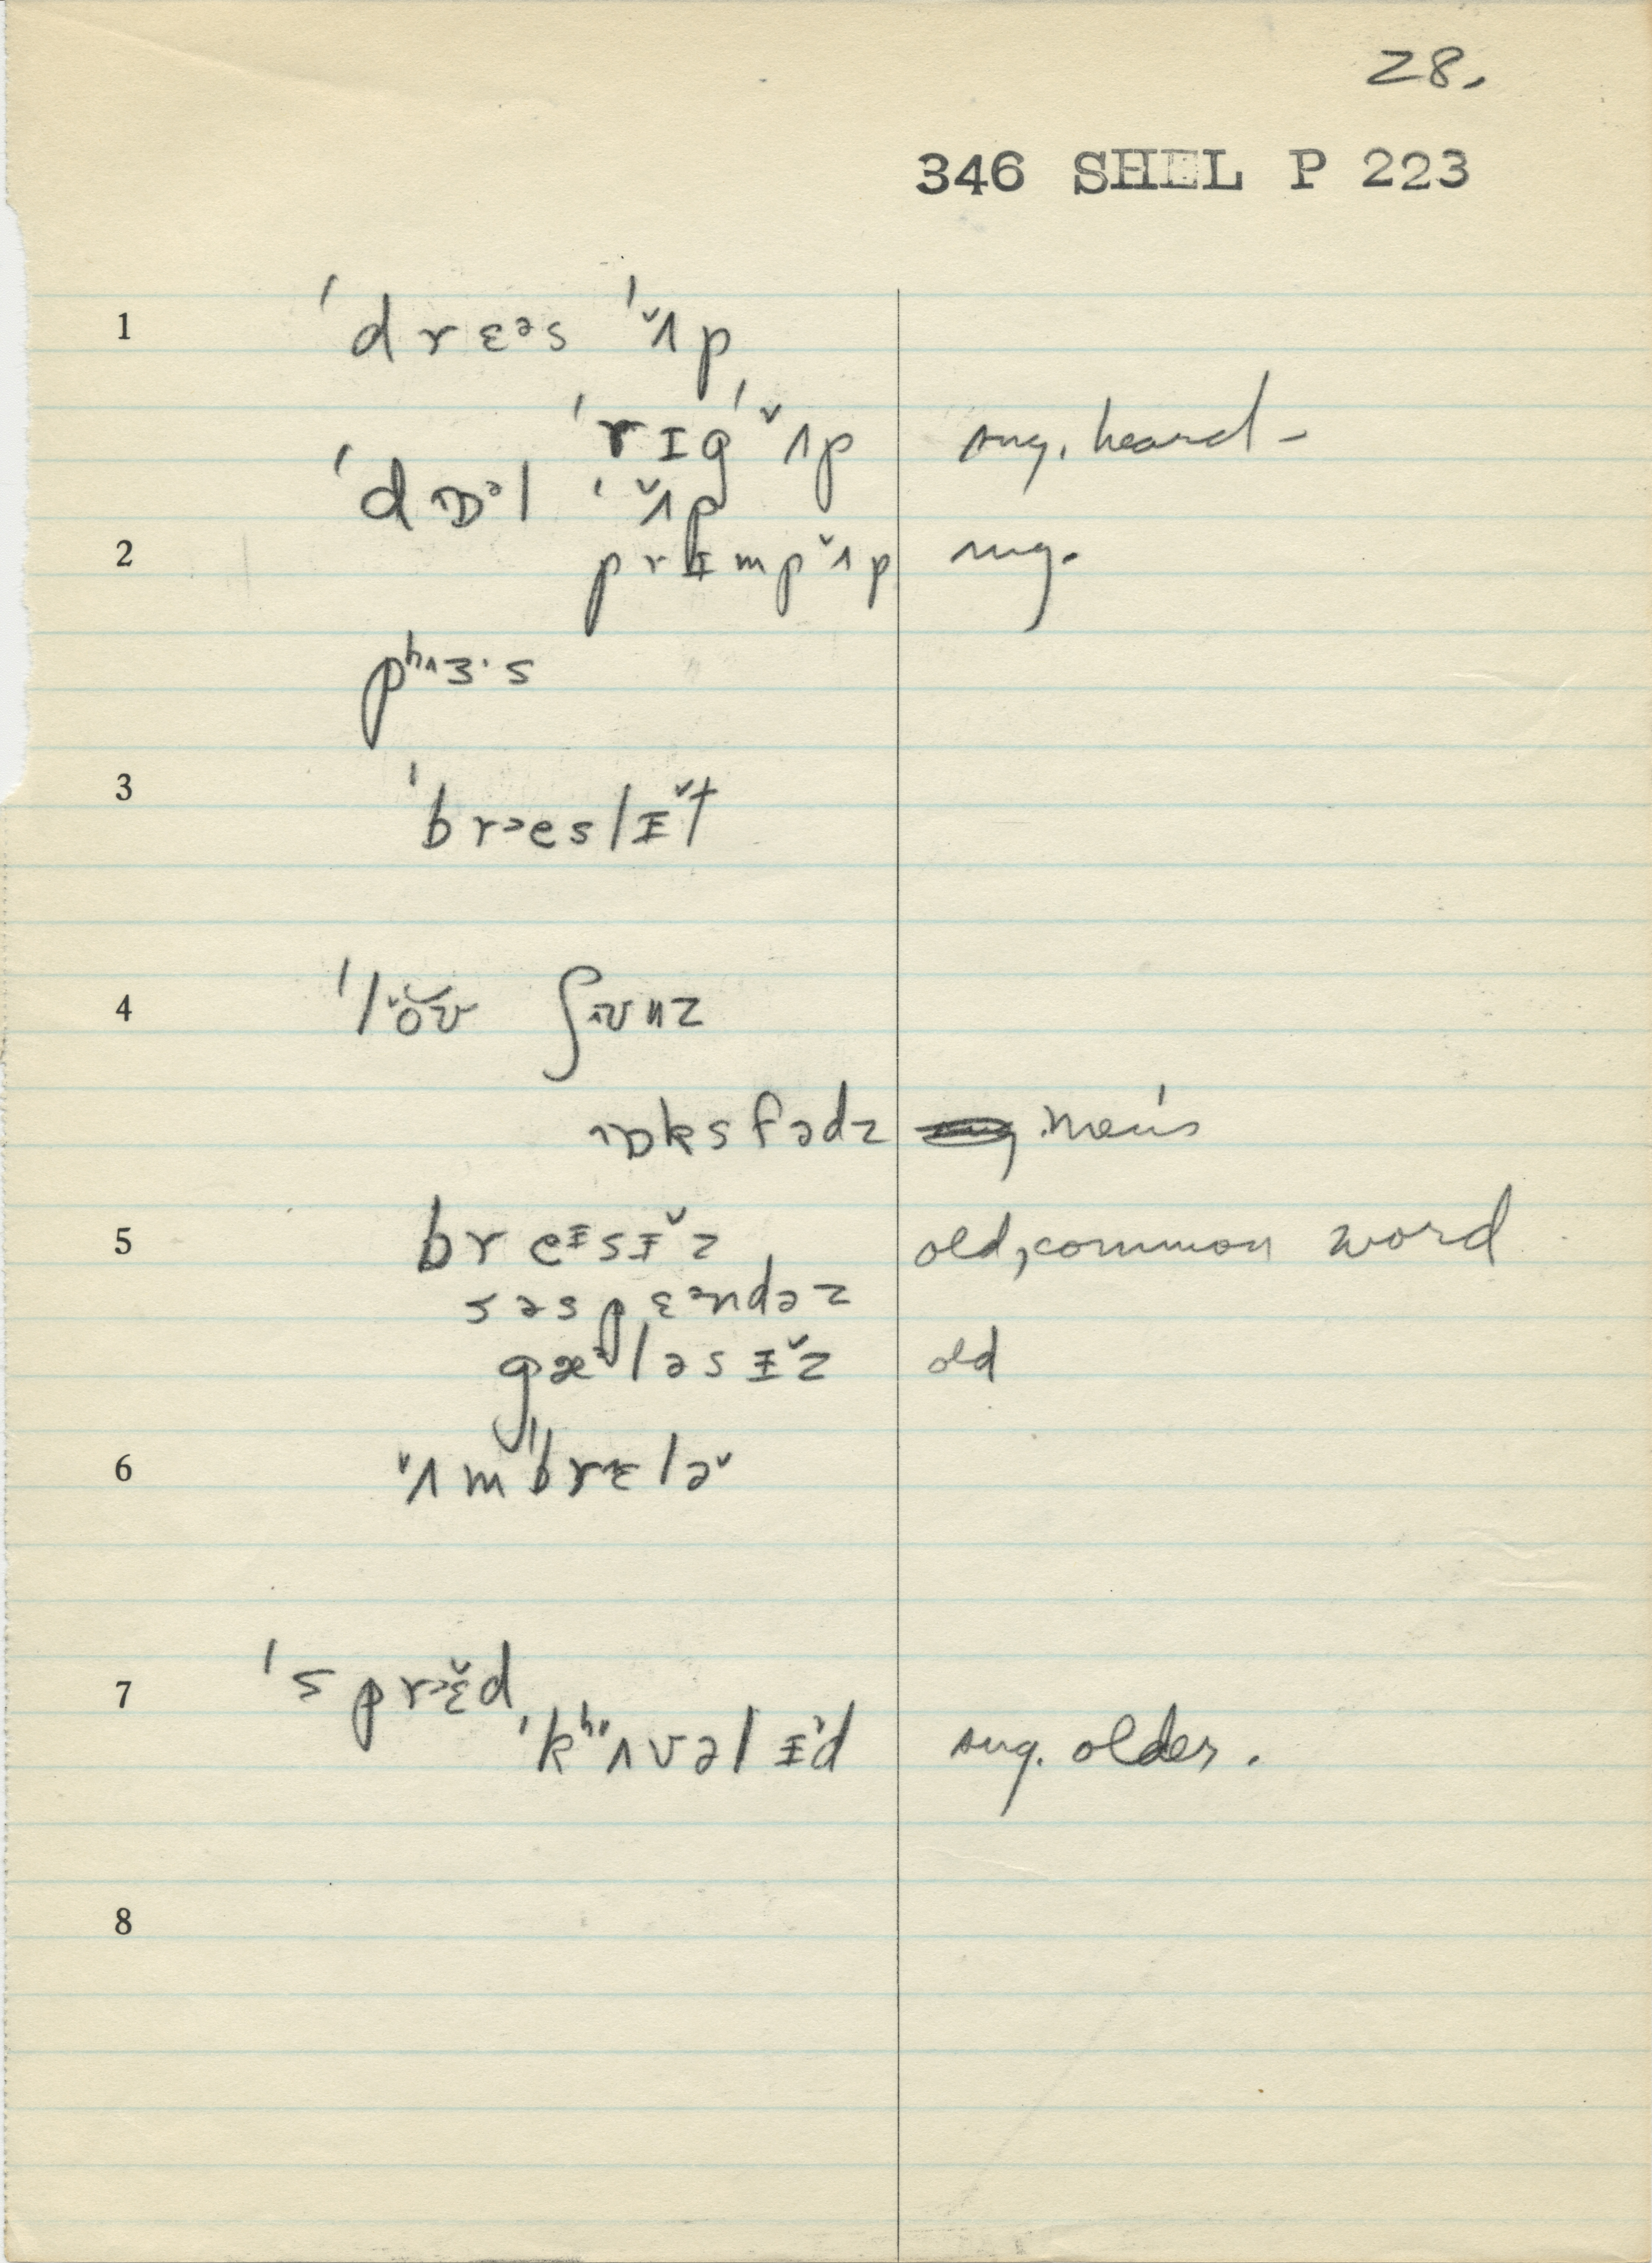 28.
346 SHEL P 223
1 ˈdrɛᵊs ˈʌ̌p
ˈrɪgˈʌ̌p sug. heard –
ˈdɒᵊl ˈʌ̌p
2 prɪmpʌ̌p sug.
pʰɜ·s
3 ˈbrᵊesləɪ̌t
4 ˈlŏʊ ʃʊnz
ɒksfədz men's
5 breɪsɪ̌z old, common word
səspɛᵊndəz
gæᵊləsɪ̌z old
6 ʌmˈbrɛlə
7 ˈsprᵊɛ̌d
ˈkʰʌvəlɪd sug. older.
8